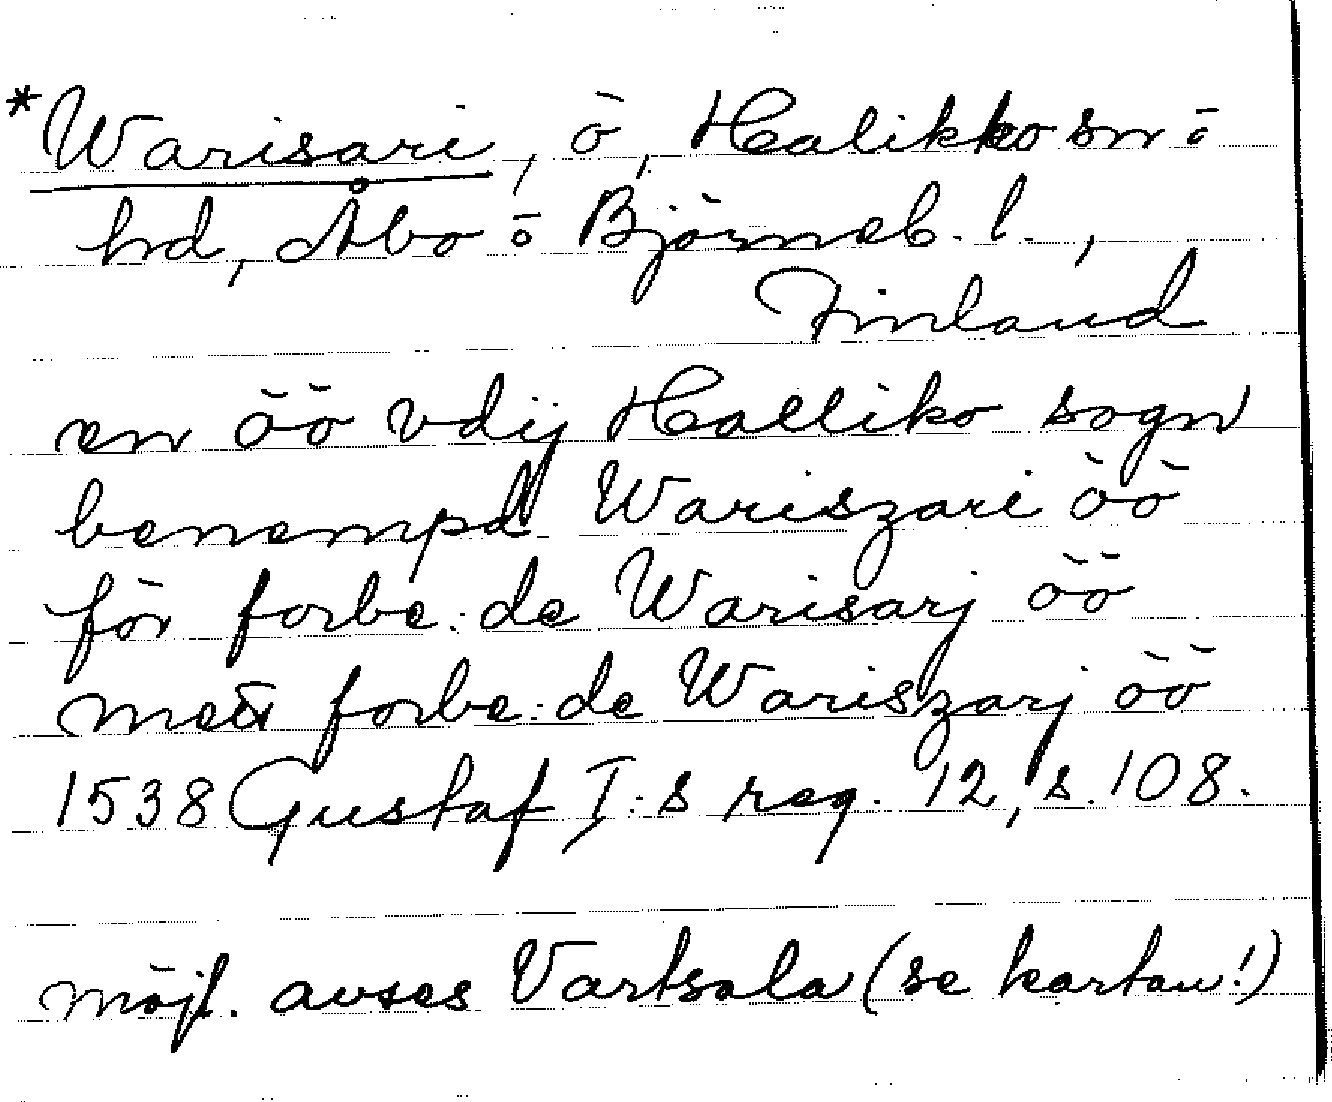 *Warisari, ö, Halikko sn o
hd, Åbo o Björneb. l.,
Finland
en öö vdij Halliko sogn
benempd Wariszari öö
för forbe:de Warisarj öö
mett forbe:de Wariszarj öö
1538 Gustaf I:s reg. 12, s. 108.
möjl. avses Vartsala (se kartan!)